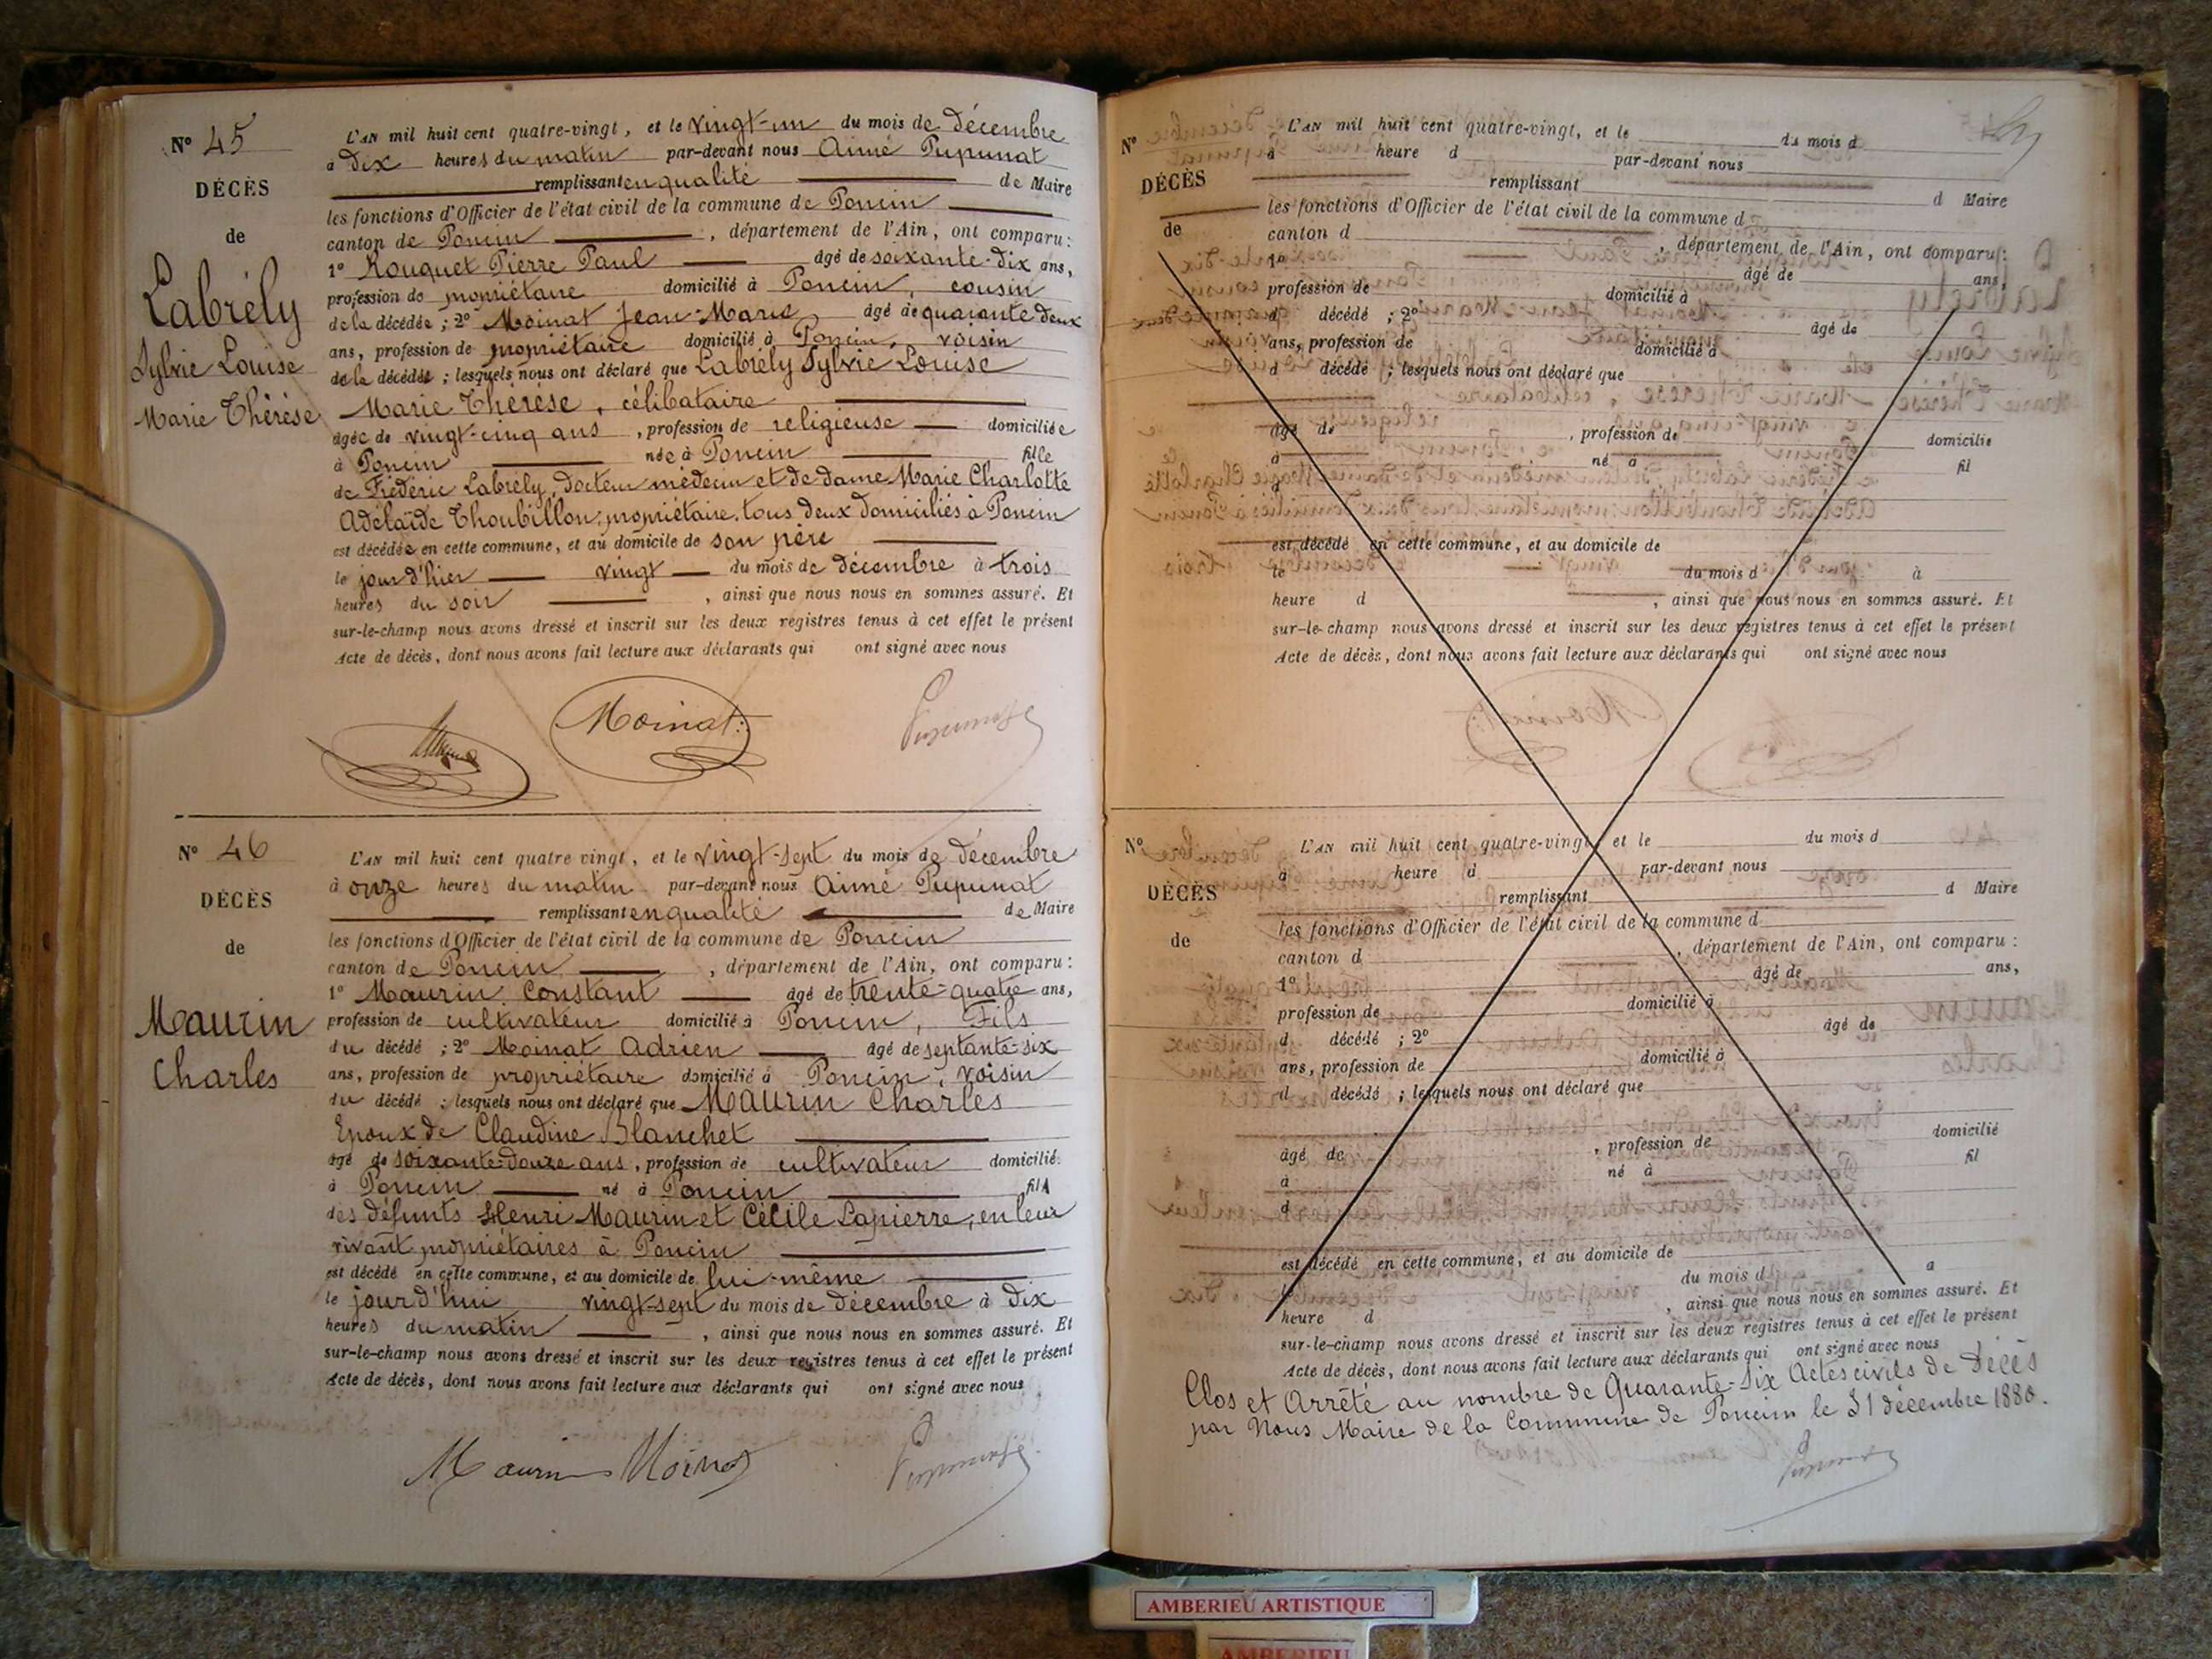 N° 45
DÉCÈS
de
Labrély
Sylvie Louise
Marie Thérèse
L'AN mil huit cent quatre-vingt, et le vingt-un du mois de décembre
à dix heures du matin par-devant nous Aimé Pupunat
remplissant en qualité de Maire
les fonctions d'Officier de l'état civil de la commune de Poncin
canton de Poncin, département de l'Ain, ont comparu:
1° Rouquet Pierre Paul âgé de soixante-dix ans,
profession de propriétaire domicilié à Poncin, cousin
de la décédée; 2° Moinat Jean-Marie âgé de quarante deux
ans, profession de propriétaire domicilié à Poncin, voisin
de la décédée; lesquels nous ont déclaré que Labrély Sylvie Louise
Marie Thérèse, célibataire
âgée de vingt-cinq ans, profession de religieuse domiciliée
à Poncin née à Poncin fille
de Frédéric Labrély, docteur médecin et de dame Marie Charlotte
Adélaïde Thoubillon, propriétaire, tous deux domiciliés à Poncin
est décédée en cette commune, et au domicile de son père
le jour d'hier vingt du mois de décembre à trois
heures du soir, ainsi que nous nous en sommes assuré. Et
sur-le-champ nous avons dressé et inscrit sur les deux registres tenus à cet effet le présent
Acte de décès, dont nous avons fait lecture aux déclarants qui ont signé avec nous
Moinat Pupunat
N° 46
DÉCÈS
de
Maurin
Charles
L'AN mil huit cent quatre vingt, et le vingt-sept du mois de décembre
à onze heures du matin par-devant nous Aimé Pupunat
remplissant en qualité de Maire
les fonctions d'Officier de l'état civil de la commune de Poncin
canton de Poncin, département de l'Ain, ont comparu:
1° Maurin Constant âgé de trente-quatre ans,
profession de cultivateur domicilié à Poncin, Fils
du décédé; 2° Moinat Adrien âgé de septante-six
ans, profession de propriétaire domicilié à Poncin, voisin
du décédé; lesquels nous ont déclaré que Maurin Charles
Epoux de Claudine Blanchet
âgé de soixante-douze ans, profession de cultivateur domicilié
à Poncin né à Poncin fils
des défunts Henri Maurin et Cécile Lapierre, en leur
vivant propriétaires à Poncin
est décédé en cette commune, et au domicile de lui-même
le jour d'hui vingt-sept du mois de décembre à dix
heures du matin, ainsi que nous nous en sommes assuré. Et
sur-le-champ nous avons dressé et inscrit sur les deux registres tenus à cet effet le présent
Acte de décès, dont nous avons fait lecture aux déclarants qui ont signé avec nous
Maurin Moinat Pupunat
N°
DÉCÈS
de
L'AN mil huit cent quatre-vingt, et le du mois d
à heure d par-devant nous
remplissant d Maire
les fonctions d'Officier de l'état civil de la commune d
canton d, département de l'Ain, ont comparu:
1° âgé de ans,
profession de domicilié à
d décédé; 2° âgé de
ans, profession de domicilié à
d décédé; lesquels nous ont déclaré que
âgé de, profession de domicilié
à né à fil
d
est décédé en cette commune, et au domicile de
le du mois d à
heure d, ainsi que nous nous en sommes assuré. Et
sur-le-champ nous avons dressé et inscrit sur les deux registres tenus à cet effet le présent
Acte de décès, dont nous avons fait lecture aux déclarants qui ont signé avec nous
N°
DÉCÈS
de
L'AN mil huit cent quatre-vingt, et le du mois d
à heure d par-devant nous
remplissant d Maire
les fonctions d'Officier de l'état civil de la commune d
canton d, département de l'Ain, ont comparu:
1° âgé de ans,
profession de domicilié à
d décédé; 2° âgé de
ans, profession de domicilié à
d décédé; lesquels nous ont déclaré que
âgé de, profession de domicilié
à né à fil
d
est décédé en cette commune, et au domicile de
l du mois d à
heure d, ainsi que nous nous en sommes assuré. Et
sur-le-champ nous avons dressé et inscrit sur les deux registres tenus à cet effet le présent
Acte de décès, dont nous avons fait lecture aux déclarants qui ont signé avec nous
Clos et Arrêté au nombre de Quarante-Six Actes civils de décès
par Nous Maire de la Commune de Poncin le 31 décembre 1880.
Pupunat
AMBERIEU ARTISTIQUE
AMBERIEU